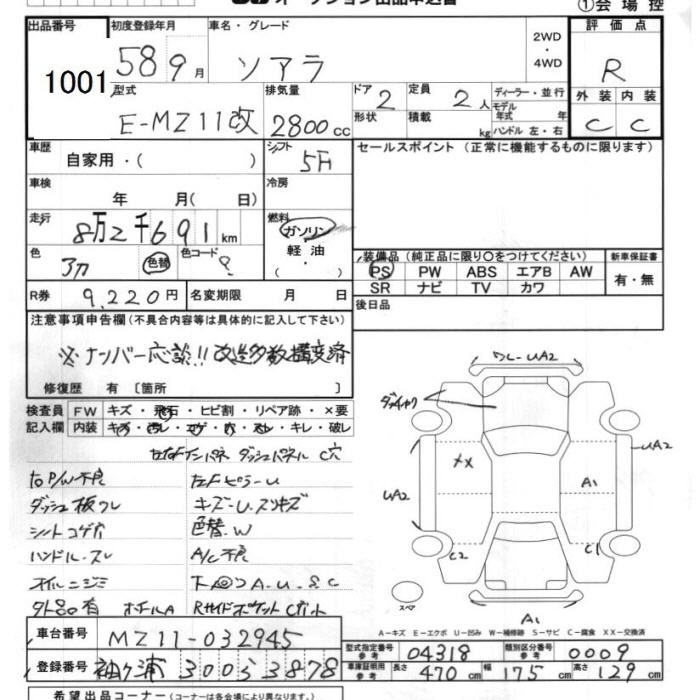 オークション出品申込書
①会場控
出品番号 初度登録年月 車名・グレード 2WD ・ 4WD 評価点
1001 58 9月 ソアラ R
型式 排気量 ドア 2 定員 2人 ディーラー・並行 外装 内装
E-MZ11改 2800cc 形状 積載 kg モデル年式 年 ハンドル 左・右 C C
車歴 自家用・( ) シフト 5F セールスポイント (正常に機能するものに限ります)
車検 年 月( 日) 冷房
走行 8万2千691km 燃料 ガソリン
色 色替 色コード ? 軽油 ・( )
装備品 (純正品に限り○をつけてください) 新車保証書
PS PW ABS エアB AW 有・無
SR ナビ TV カワ
R券 9,220円 名変期限 月 日 後日品
注意事項申告欄 (不具合内容等は具体的に記入して下さい)
※ナンバー応談!! 改造多数構変済
修復歴 有 〔箇所 〕
検査員 FW キズ・飛石・ヒビ割・リペア跡・×要
記入欄 内装 キズ・汚レ・コゲ・穴・スレ・キレ・破レ
ダッシュパネル C穴
右P/W不良 左Fピラー U
ダッシュ板ワレ キズ・U・スリキズ
シートコゲ穴 色替.W
ハンドル・スレ A/C不良
オイルニジミ A.U.SC
外品有 ホイルA Rサイドポケット
ワレ-UA2
XX
UA2
UA2
A1
C2
C1
A1
スペア
A-キズ E-エクボ U-凹み W-補修跡 S-サビ C-腐食 XX-交換済
車台番号 MZ11-032945
型式指定番号 参考 04318 類別区分番号 参考 0009
登録番号 袖ヶ浦 300 ら 3878
車庫証明用 参考 長さ 470cm 幅 175cm 高さ 129cm
希望出品コーナー (コーナーは各会場により異なります。)